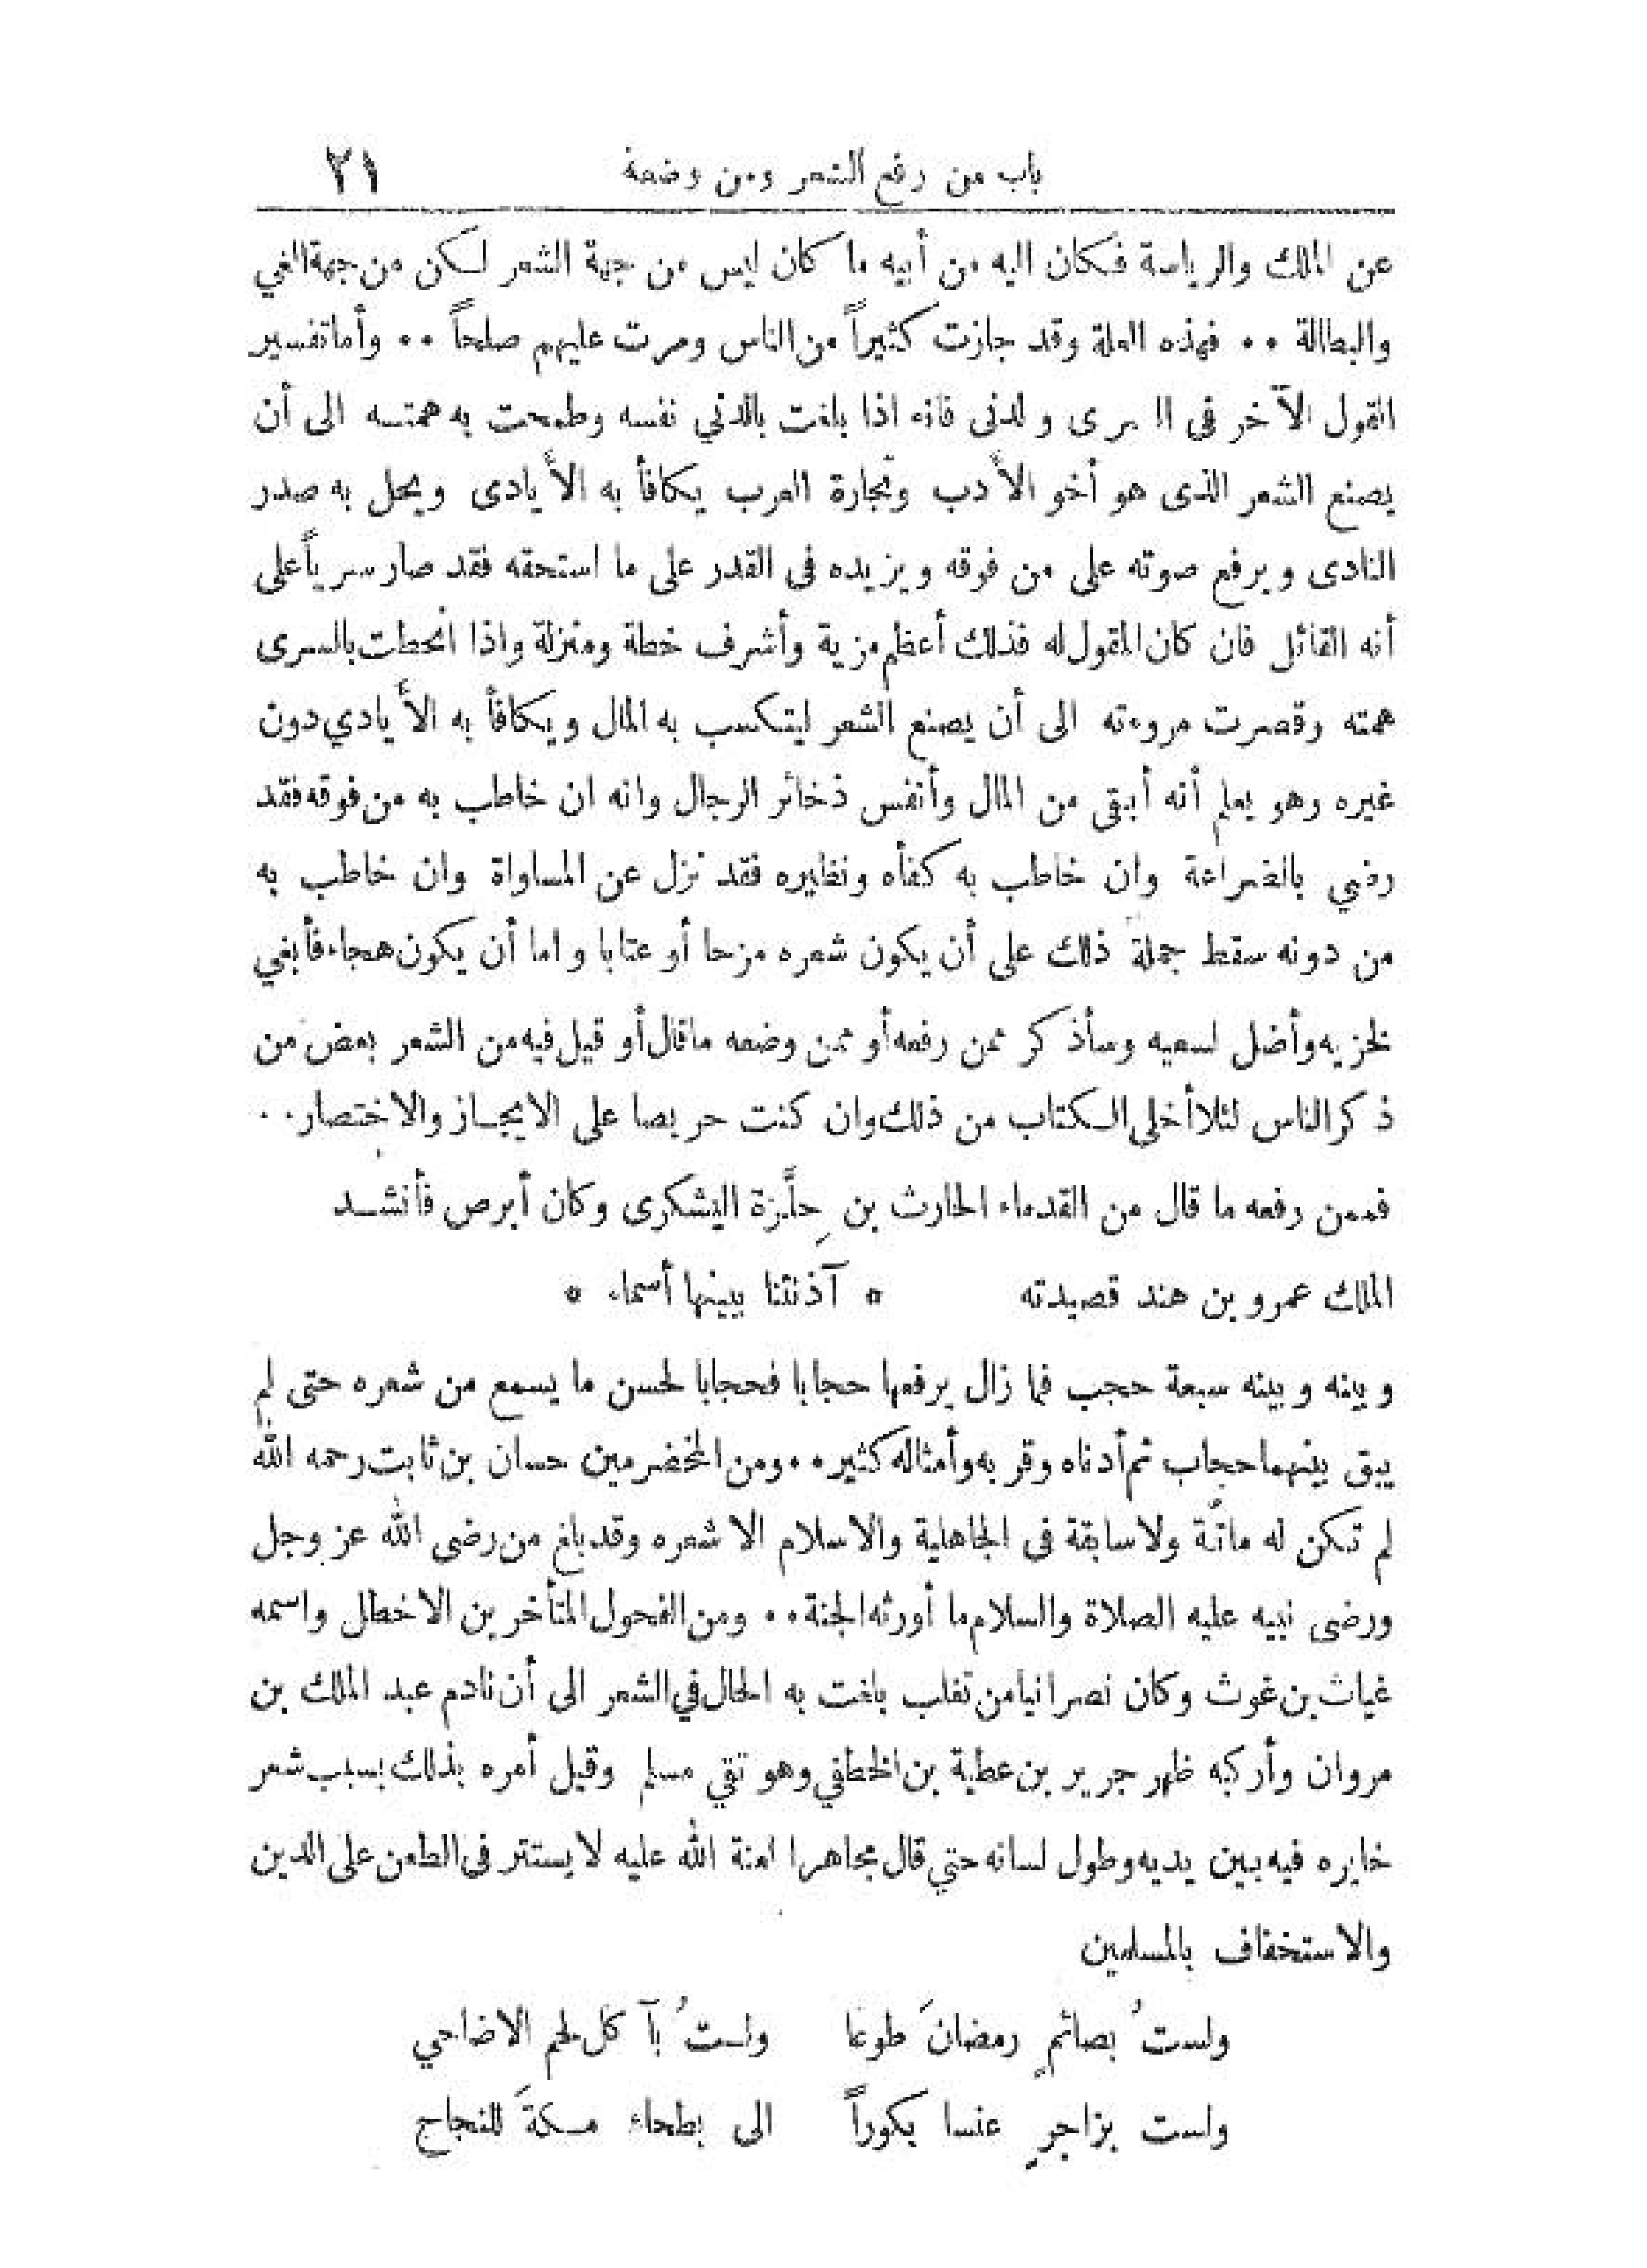 باب من رفع الشعر ومن وضعه ٢١
عن الملك والرياسة فكان اليه من أبيه ما كان ليس من جهة الشعر لكن من جهة الغي
والبطالة •• فهذه العلة وقد جازت كثيراً من الناس ومرت عليهم صلحاً •• وأما تفسير
القول الآخر فى السرى والدنى فانه اذا بلغت بالدني نفسه وطمحت به همته الى أن
يصنع الشعر الذى هو أخو الأدب وتجارة العرب يكافأ به الأيادى ويحل به صدر
النادى ويرفع صوته على من فوقه ويزيده فى القدر على ما استحقه فقد صار سرياً على
أنه القائل فان كان المقول له فذلك أعظم مزية وأشرف خطة ومنزلة واذا انحطت بالسرى
همته وقصرت مروءته الى أن يصنع الشعر ليتكسب به المال ويكافأ به الأيادي دون
غيره وهو يعلم أنه أبقى من المال وأنفس ذخائر الرجال وانه ان خاطب به من فوقه فقد
رضي بالضراعة وان خاطب به كفأه ونظيره فقد نزل عن المساواة وان خاطب به
من دونه سقط جملة ذلك على أن يكون شعره مزحا أو عتابا واما أن يكون هجاء فأبغي
لخزيه وأضل لسعيه وسأذكر ممن رفعه أو ممن وضعه ما قال أو قيل فيه من الشعر بعض من
ذكر الناس لئلا أخلى الكتاب من ذلك وان كنت حريصا على الايجاز والاختصار ••
فممن رفعه ما قال من القدماء الحارث بن حِلَّزة اليشكرى وكان أبرص فأنشد
الملك عمرو بن هند قصيدته * آذنتنا ببينها أسماء *
وبينه وبينه سبعة حجب فما زال يرفعها حجابا فحجابا لحسن ما يسمع من شعره حتى لم
يبق بينهما حجاب ثم أدناه وقربه وأمثاله كثير •• ومن المخضرمين حسان بن ثابت رحمه الله
لم تكن له ماتّة ولا سابقة فى الجاهلية والاسلام الا شعره وقد بلغ من رضى الله عز وجل
ورضى نبيه عليه الصلاة والسلام ما أورثه الجنة •• ومن الفحول المتأخرين الاخطل واسمه
غياث بن غوث وكان نصرانيا من تغلب بلغت به الحال في الشعر الى أن نادم عبد الملك بن
مروان وأركبه ظهر جرير بن عطية بن الخطفي وهو تقي مسلم وقيل أمره بذلك بسبب شعر
خايره فيه بين يديه وطول لسانه حتي قال مجاهرا لعنة الله عليه لا يستتر فى الطعن على الدين
والاستخفاف بالمسلمين
ولستُ بصائمٍ رمضانَ طوعا ولستُ بآكل لحم الاضاحي
ولست بزاجرٍ عنسا بكوراً الى بطحاء مكةَ للنجاح